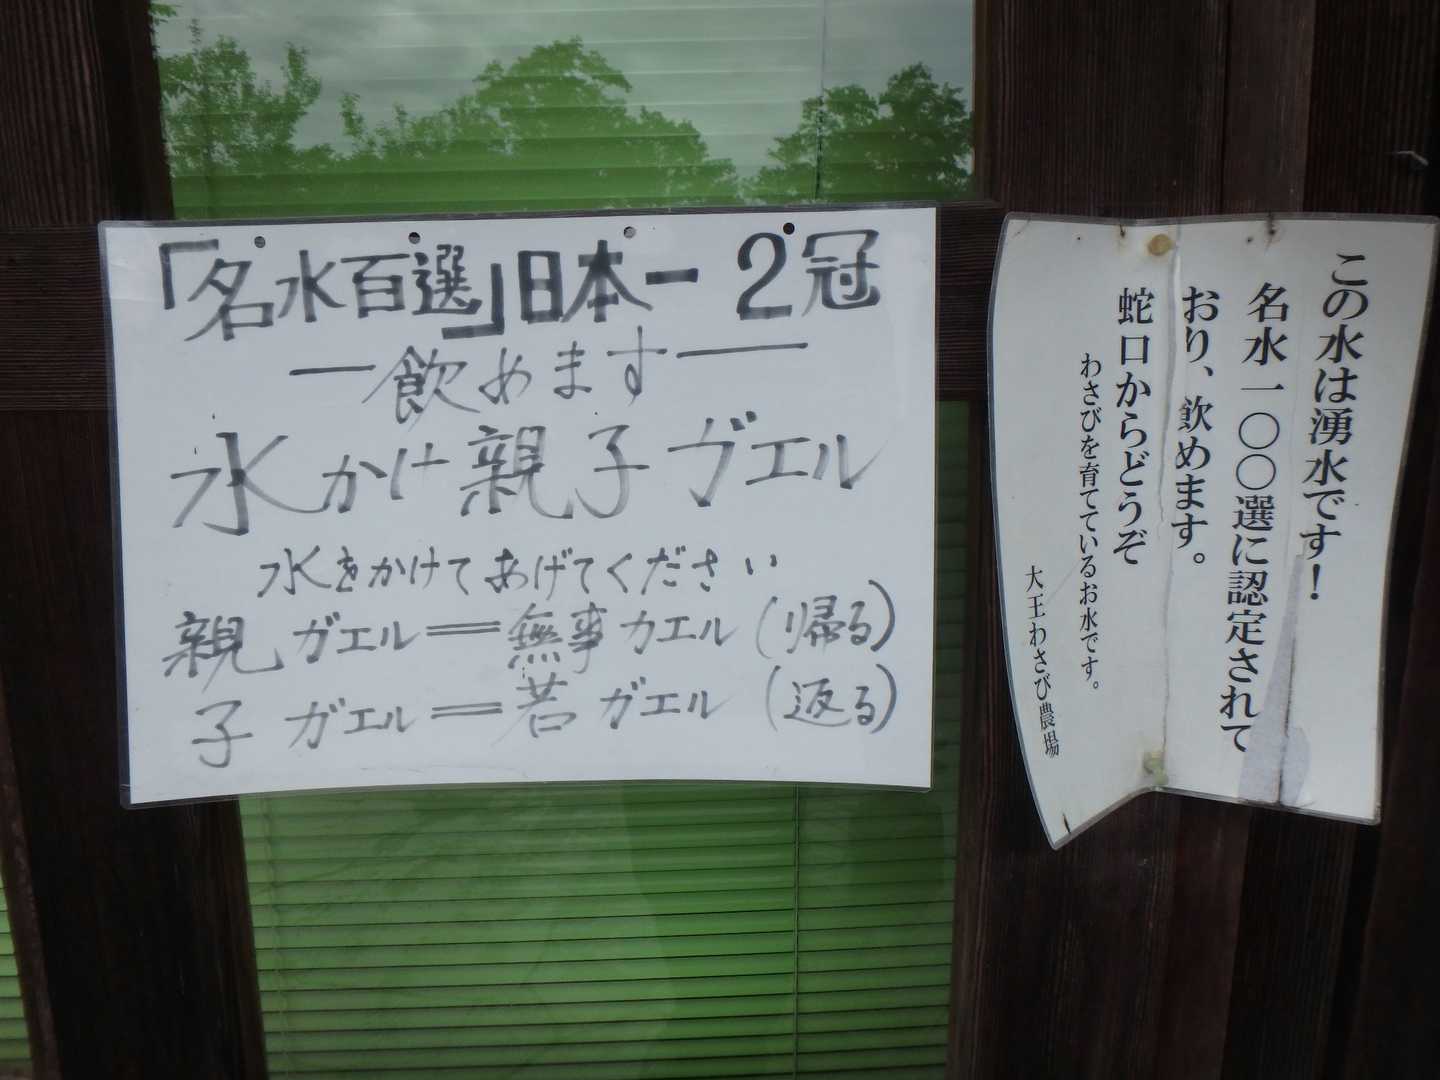 「名水百選」日本一 2冠
―飲めます―
水かけ親子ガエル
水をかけてあげてください
親ガエル=無事カエル(帰る)
子ガエル=若ガエル(返る)
この水は湧水です!
名水一〇〇選に認定されて
おり、飲めます。
蛇口からどうぞ
わさびを育てているお水です。
大王わさび農場